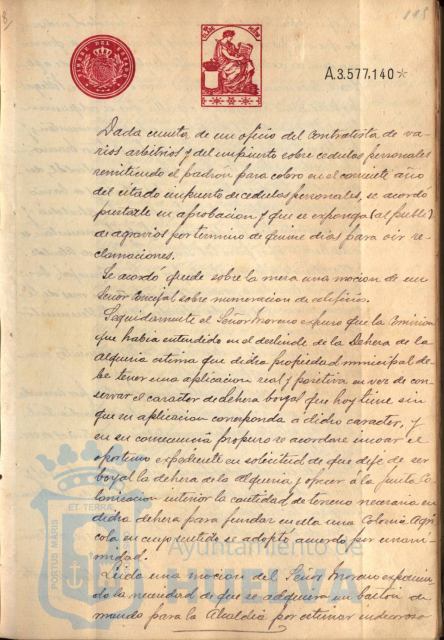 8
115
TIMBRE DEL ESTADO
A.3.577,140*
Dada cuenta de un oficio del Contratista de va-
rios arbitrios y del impuesto sobre cedulas personales
remitiendo el padron para cobro en el corriente año
del citado impuesto de cedulas personales, se acordó
prestarle su aprobacion y que se exponga (al public)
de agravios por termino de quince dias para oir re-
clamaciones.
Se acordó quede sobre la mesa una mocion de un
Señor Concejal sobre numeracion de edificios.
Seguidamente el Señor Moreno expuso que la Comision
que habia entendido en el deslinde de la Dehesa de la
Alqueria estima que dicha propiedad municipal de-
be tener una aplicacion real y positiva en vez de con-
servar el caracter de dehesa boyal que hoy tiene sin
que su aplicacion corresponda á dicho caracter, y
en su consecuencia propuso se acordara incoar el
oportuno expediente en solicitud de que deje de ser
boyal la dehesa de la alqueria y ofrecer á la Junta Co-
lonizacion interior la cantidad de terreno necesaria en
dicha dehesa para fundar en ella una Colonia Agri-
cola en cuyo sentido se adoptó acuerdo por unani-
midad.
Leida una mocion del Señor Moreno exponien-
do la necesidad de que se adquiera un baston de
mando para la Alcaldia por estimar indecoroso
PORTUS MARIS ET TERRAE
Ayuntamiento de
HUELVA